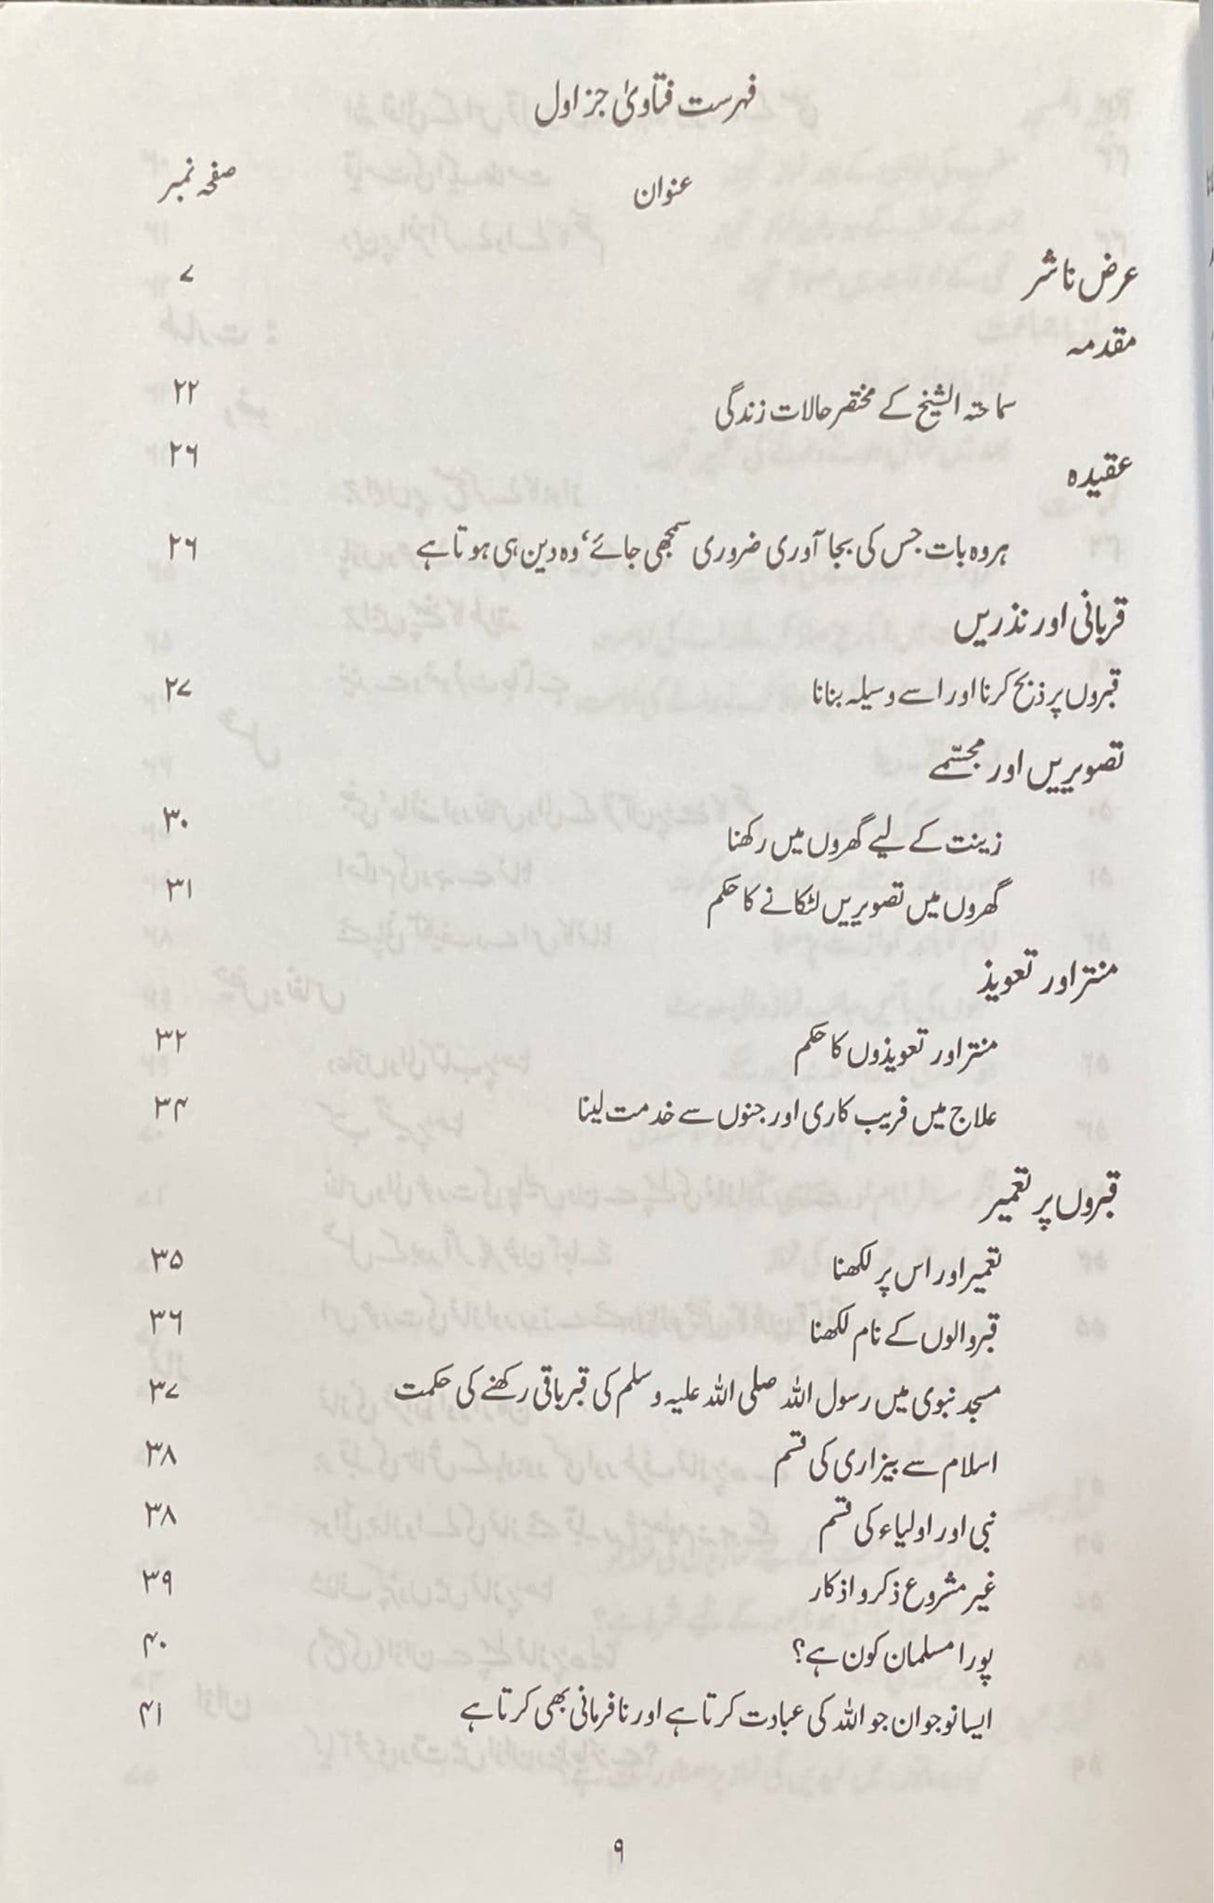 فہرست فتاویٰ جز اول
عنوان صفحہ نمبر
عرض ناشر ۷
مقدمہ
سماحتہ الشیخ کے مختصر حالات زندگی ۲۲
عقیدہ ۲۶
ہر وہ بات جس کی بجا آوری ضروری سمجھی جائے، وہ دین ہی ہوتا ہے ۲۶
قربانی اور نذریں
قبروں پر ذبح کرنا اور اسے وسیلہ بنانا ۲۷
تصویریں اور مجسّمے
زینت کے لیے گھروں میں رکھنا ۳۰
گھروں میں تصویریں لٹکانے کا حکم ۳۱
منتر اور تعویذ
منتر اور تعویذوں کا حکم ۳۲
علاج میں فریب کاری اور جنوں سے خدمت لینا ۳۴
قبروں پر تعمیر
تعمیر اور اس پر لکھنا ۳۵
قبر والوں کے نام لکھنا ۳۶
مسجد نبوی میں رسول اللہ صلی اللہ علیہ وسلم کی قبر باقی رکھنے کی حکمت ۳۷
اسلام سے بیزاری کی قسم ۳۸
نبی اور اولیاء کی قسم ۳۸
غیر مشروع ذکر و اذکار ۳۹
پورا مسلمان کون ہے؟ ۴۰
ایسا نوجوان جو اللہ کی عبادت کرتا ہے اور نافرمانی بھی کرتا ہے ۴۱
۹